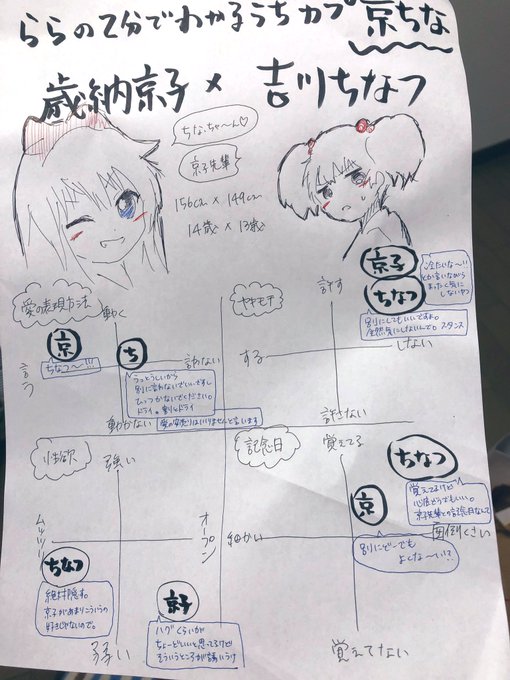 ららの2分でわかるうちカプ 京ちな
歳納京子×吉川ちなつ
ちなちゃ〜ん♡
京子先輩
156cm × 149cm
14歳 × 13歳
愛の表現方法
動く
言う
言わない
動かない
京
ちなつ〜!!!
ち
うっとうしいから
別に言わないでいいですし
ひっつかないでください。
ドライ。割とドライ
愛の安売りはいりませんと言います
ヤキモチ
許す
する
しない
許さない
京子
冷たいな〜!!
とか言いながら
まったく気に
しないヤツ
ちなつ
別にしてもいいですよ。
全然気にしないんで。スタンス
性欲
強い
ムッツリ
オープン
弱い
ちなつ
絶対隠す。
京子があまりこういうの
好きじゃないので。
京子
ハグくらいが
ちょーどいいと思ってるけど
そういうところが
記念日
覚えてる
細かい
面倒くさい
覚えてない
ちなつ
覚えてるけど
心底どうでもいい。
京子先輩との記念日なんて
京
別にどーでも
よくな〜い!?